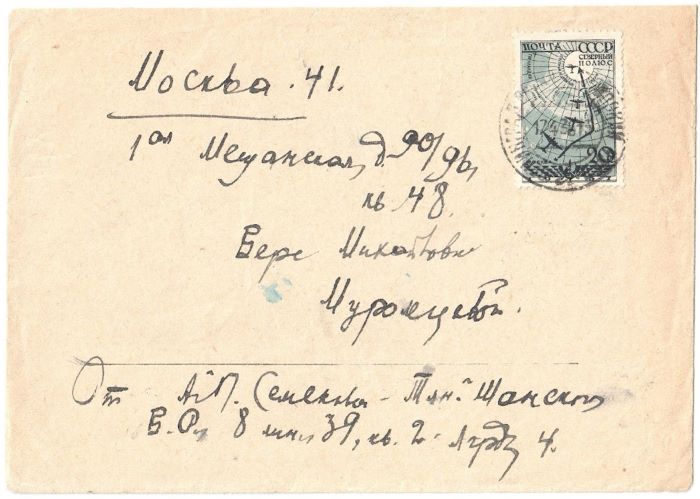 ПОЧТА СССР
СЕВЕРНЫЙ
ПОЛЮС
20
Москва 41.
1ая Мещанская, д. 90/96,
кв 48.
Вере Михайловне
Муромцевой.
От А.П. Семенова-Тян-Шанского
В.О. 8 линия 39, кв. 2. Лгрд 4.